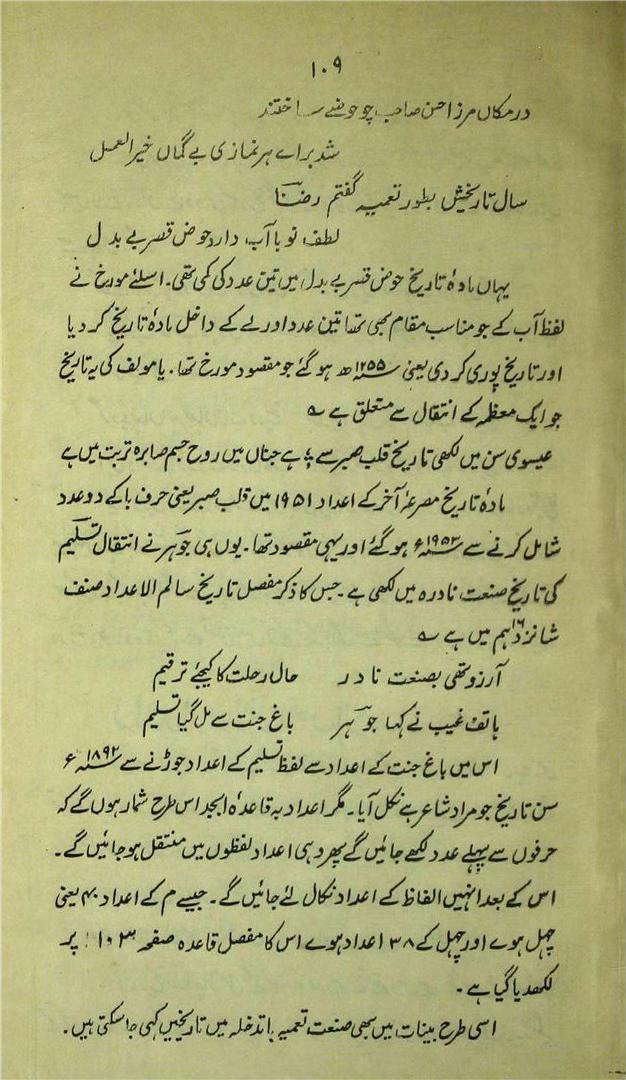 ۱۰۹
در مکاں مرزا حسن صاحب چو حوضے ساختند
شد براے ہر نمازی بے گماں خیر العمل
سال تاریخش بطور تعمیہ گفتم رضاؔ
لطف نو با آب دارد حوض قصر بے بدل
یہاں مادۂ تاریخ حوض قصر بے بدل میں تین عدد کی کمی تھی۔ اسلئے مورخ نے
لفظ آب کے جو مناسب مقام بھی تھا تین عدد اور لے کے داخل مادۂ تاریخ کر دیا
اور تاریخ پوری کر دی یعنی ۱۲۵۵ھ ہو گئے جو مقصود مورخ تھا۔ یا مولف کی یہ تاریخ
جو ایک معظمہ کے انتقال سے متعلق ہے ؎
عیسوی سن میں لکھی تاریخ قلب صبر سے ؛ ہے جناں میں روح جسم صابرہ تربت میں ہے
مادۂ تاریخ مصرعۂ آخر کے اعداد ۱۹۵۱ میں قلب صبر یعنی حرف با کے دو عدد
شامل کرنے سے ۱۹۵۳ء ہو گئے اور یہی مقصود تھا۔ یوں ہی جوہرؔ نے انتقال تسلیمؔ
کی تاریخ صنعت نادرہ میں لکھی ہے۔ جس کا ذکر مفصل تاریخ سالم الاعداد صنف
شانزدہم ۱۶ میں ہے ؎
آرزو تھی بصنعت نادر حال رحلت کا کیجئے ترقیم
ہاتف غیب نے کہا جوہرؔ باغ جنت سے مل گیا تسلیم
اس میں باغ جنت کے اعداد سے لفظ تسلیمؔ کے اعداد جوڑنے سے ۱۸۹۲ء
سن تاریخ جو مراد شاعر ہے نکل آیا۔ مگر اعداد بہ قاعدہ ابجد اس طرح شمار ہوں گے کہ
حرفوں سے پہلے عدد لکھے جائیں گے پھر وہی اعداد لفظوں میں منتقل ہو جائیں گے۔
اس کے بعد انہیں الفاظ کے اعداد نکال لئے جائیں گے۔ جیسے م کے اعداد ۴۰ یعنی
چہل ہوے اور چہل کے ۳۸ اعداد ہوے اس کا مفصل قاعدہ صفحہ ۱۰۳ پر
لکھدیا گیا ہے۔
اسی طرح بینات میں بھی صنعت تعمیہ باتدخلہ میں تاریخیں کہی جا سکتی ہیں۔